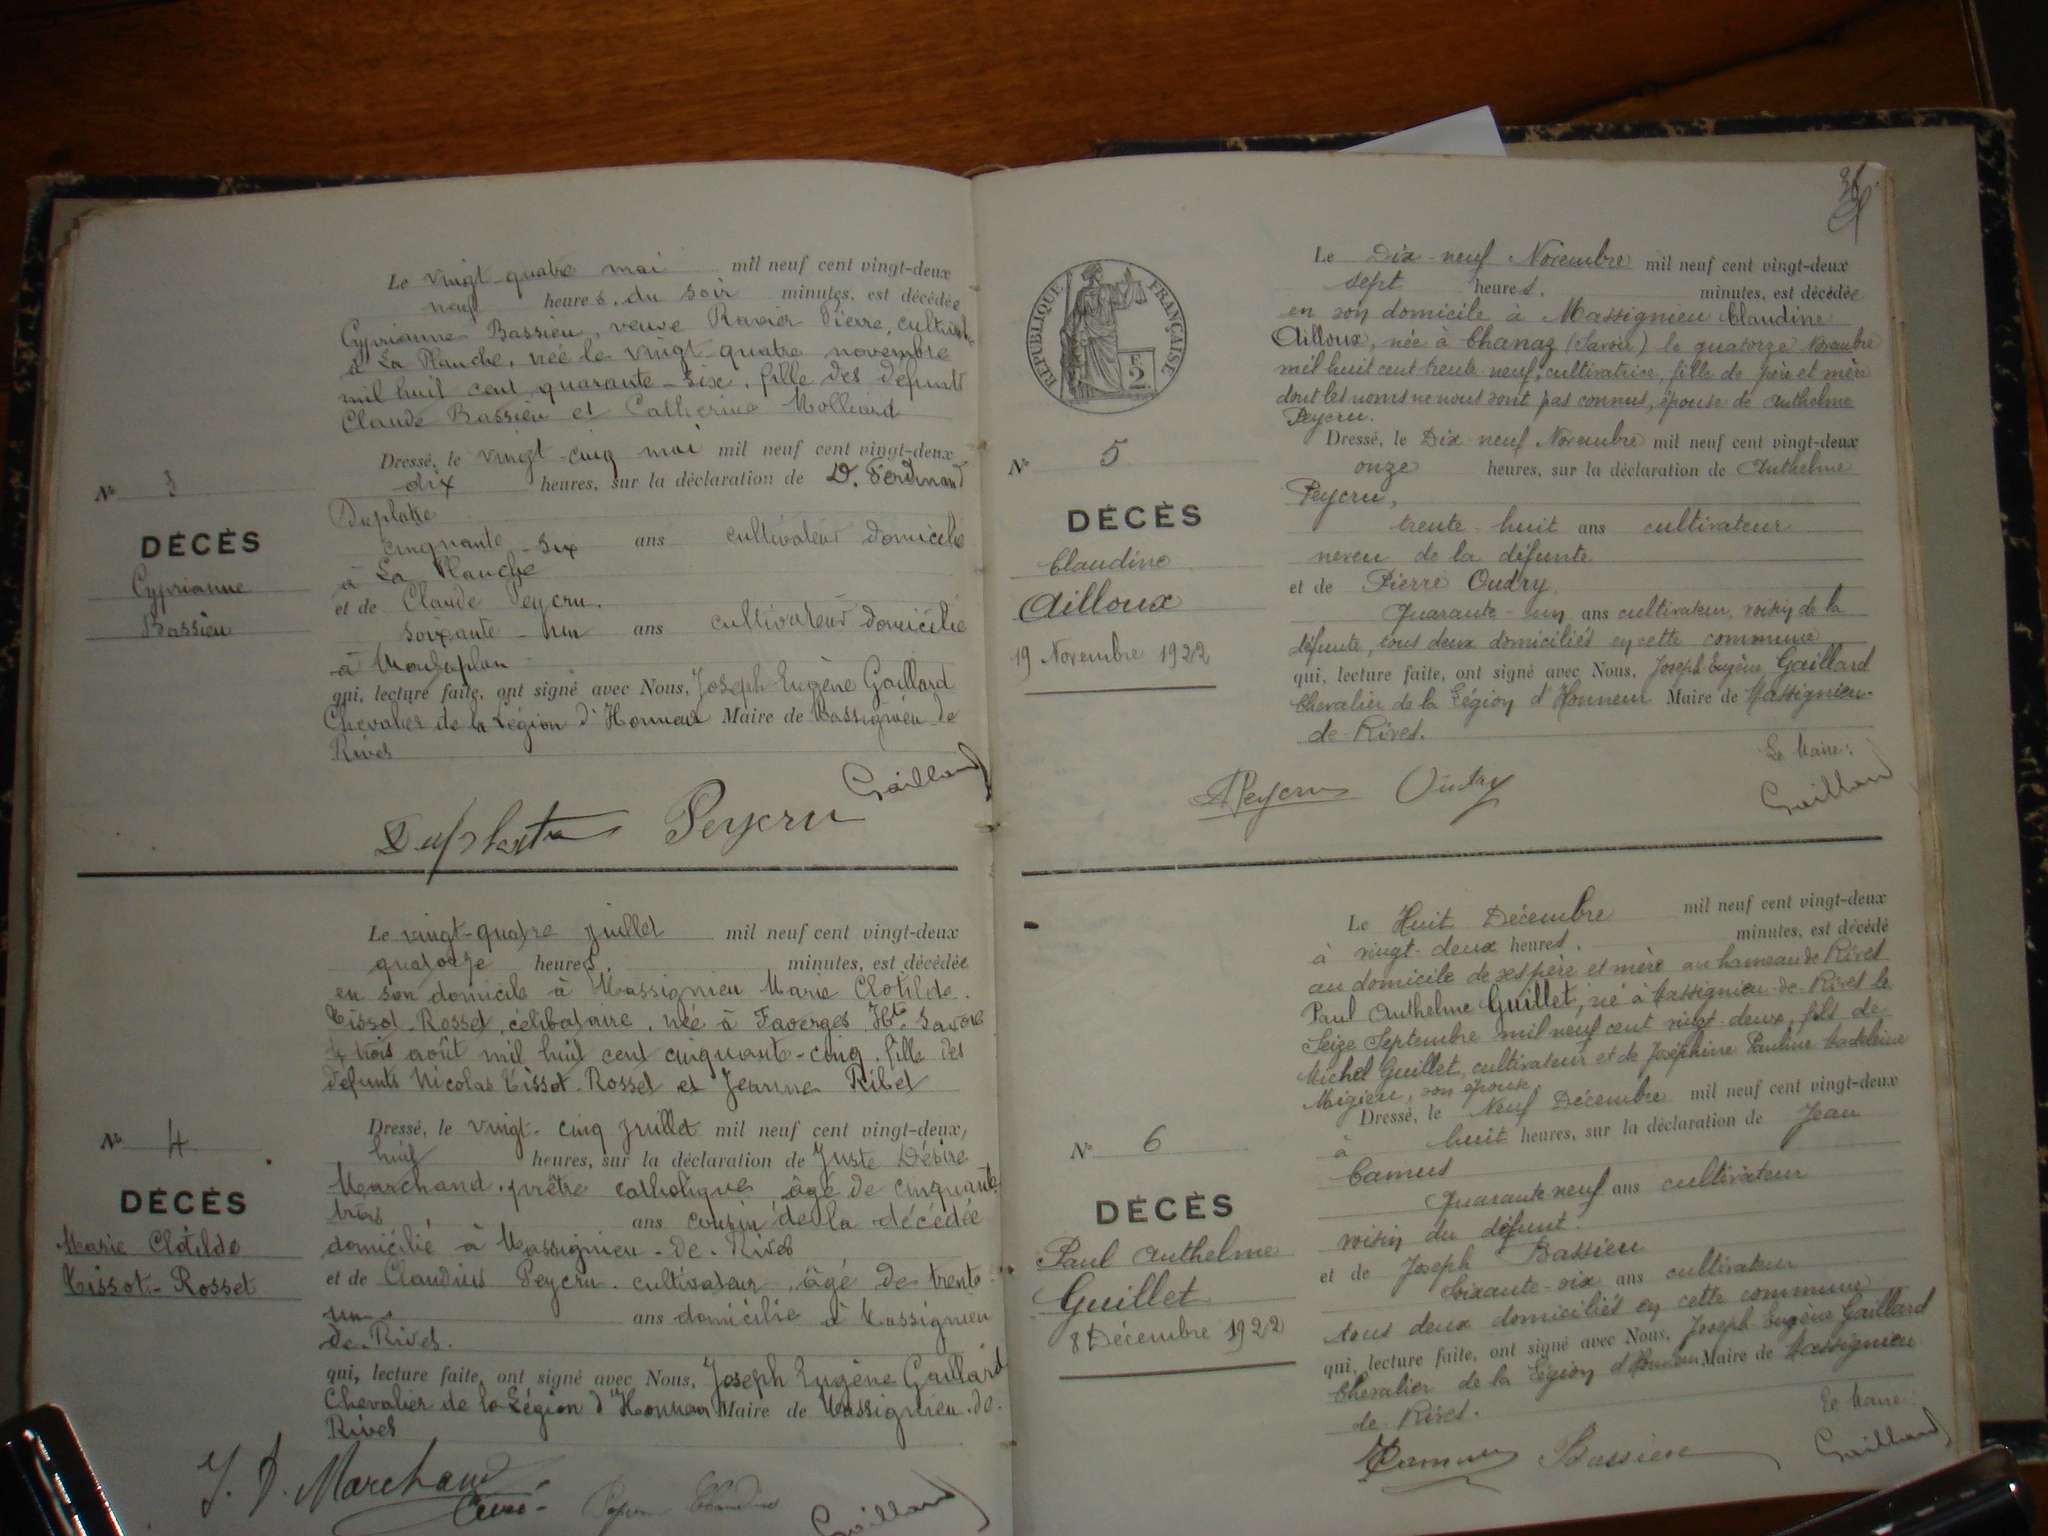 Le vingt-quatre mai mil neuf cent vingt-deux
neuf heures du soir minutes, est décédée
Cyprianne Bassieu, veuve Ravier Pierre,
à La Planche, née le vingt-quatre novembre
mil huit cent quarante-six, fille des défunts
Claude Bassieu et Catherine Molliard
Dressé, le vingt-cinq mai mil neuf cent vingt-deux
dix heures, sur la déclaration de D. Ferdinand
Duplatre
cinquante-six ans cultivateur domicilié
à La Planche
et de Claude Peycru.
soixante-un ans cultivateur domicilié
à
qui, lecture faite, ont signé avec Nous, Joseph Eugène Gaillard
Chevalier de la Légion d'Honneur Maire de Massignieu de
Rives
N° 3
DÉCÈS
Cyprianne
Bassieu
Peycru Gaillard
Le vingt-quatre juillet mil neuf cent vingt-deux
quatorze heures. minutes, est décédée
en son domicile à Massignieu Marie Clotilde
Tissot-Rosset, célibataire, née à Faverges, Hte Savoie
le trois août mil huit cent cinquante-cinq, fille des
défunts Nicolas Tissot-Rosset et Jeanne Ribet
Dressé, le vingt-cinq juillet mil neuf cent vingt-deux,
huit heures, sur la déclaration de Juste Désiré
Marchand, prêtre catholique, âgé de cinquante
trois ans cousin de la décédée
domicilié à Massignieu-de-Rives
et de Claudius Peycru, cultivateur, âgé de trente
un ans domicilié à Massignieu
de-Rives.
qui, lecture faite, ont signé avec Nous, Joseph Eugène Gaillard
Chevalier de la Légion d'Honneur Maire de Massignieu-de-
Rives
N° 4
DÉCÈS
Marie Clotilde
Tissot-Rosset
J. D. Marchand
Curé
Gaillard
RÉPUBLIQUE FRANÇAISE
2
Le Dix-neuf Novembre mil neuf cent vingt-deux
sept heures. minutes, est décédée
en son domicile à Massignieu Claudine
Ailloux, née à Chanaz (Savoie) le quatorze Novembre
mil huit cent trente-neuf, cultivatrice, fille de père et mère
dont les noms ne nous sont pas connus, épouse de Anthelme
Peycru.
Dressé, le Dix neuf Novembre mil neuf cent vingt-deux
onze heures, sur la déclaration de Anthelme
Peycru,
trente-huit ans cultivateur
neveu de la défunte
et de Pierre Oudry,
Quarante-un ans cultivateur, voisin de la
défunte, tous deux domiciliés en cette commune
qui, lecture faite, ont signé avec Nous, Joseph Eugène Gaillard
Chevalier de la Légion d'Honneur Maire de Massignieu-
de-Rives.
Le Maire:
N° 5
DÉCÈS
Claudine
Ailloux
19 Novembre 1922
A Peycru Oudry Gaillard
Le Huit Décembre mil neuf cent vingt-deux
à vingt-deux heures. minutes, est décédé
au domicile de ses père et mère au hameau de Rives
Paul Anthelme Guillet, né à Massignieu-de-Rives le
Seize Septembre mil neuf cent vingt-deux, fils de
Michel Guillet, cultivateur et de Joséphine Pauline Madeleine
Migieu, son épouse
Dressé, le Neuf Décembre mil neuf cent vingt-deux
à huit heures, sur la déclaration de Jean
Camus
Quarante-neuf ans cultivateur
voisin du défunt.
et de Joseph Bassieu
Soixante-six ans cultivateur
tous deux domiciliés en cette commune
qui, lecture faite, ont signé avec Nous, Joseph Eugène Gaillard
Chevalier de la Légion d'Honneur Maire de Massignieu
de Rives.
Le Maire:
N° 6
DÉCÈS
Paul Anthelme
Guillet
8 Décembre 1922
Camus Bassieu Gaillard